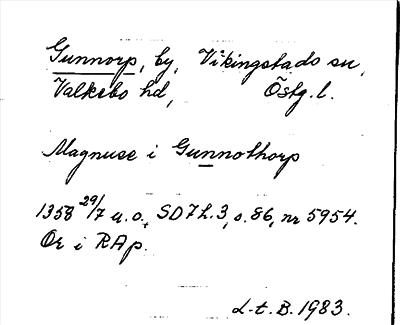 Gunnorp, by, Vikingstads sn,
Valkebo hd, Östg. l.
Magnuse i Gunnothorp
1358 29/7 u.o., SD 7 h.3, s.86, nr 5954.
Or i RAp.
L.t.B. 1983.